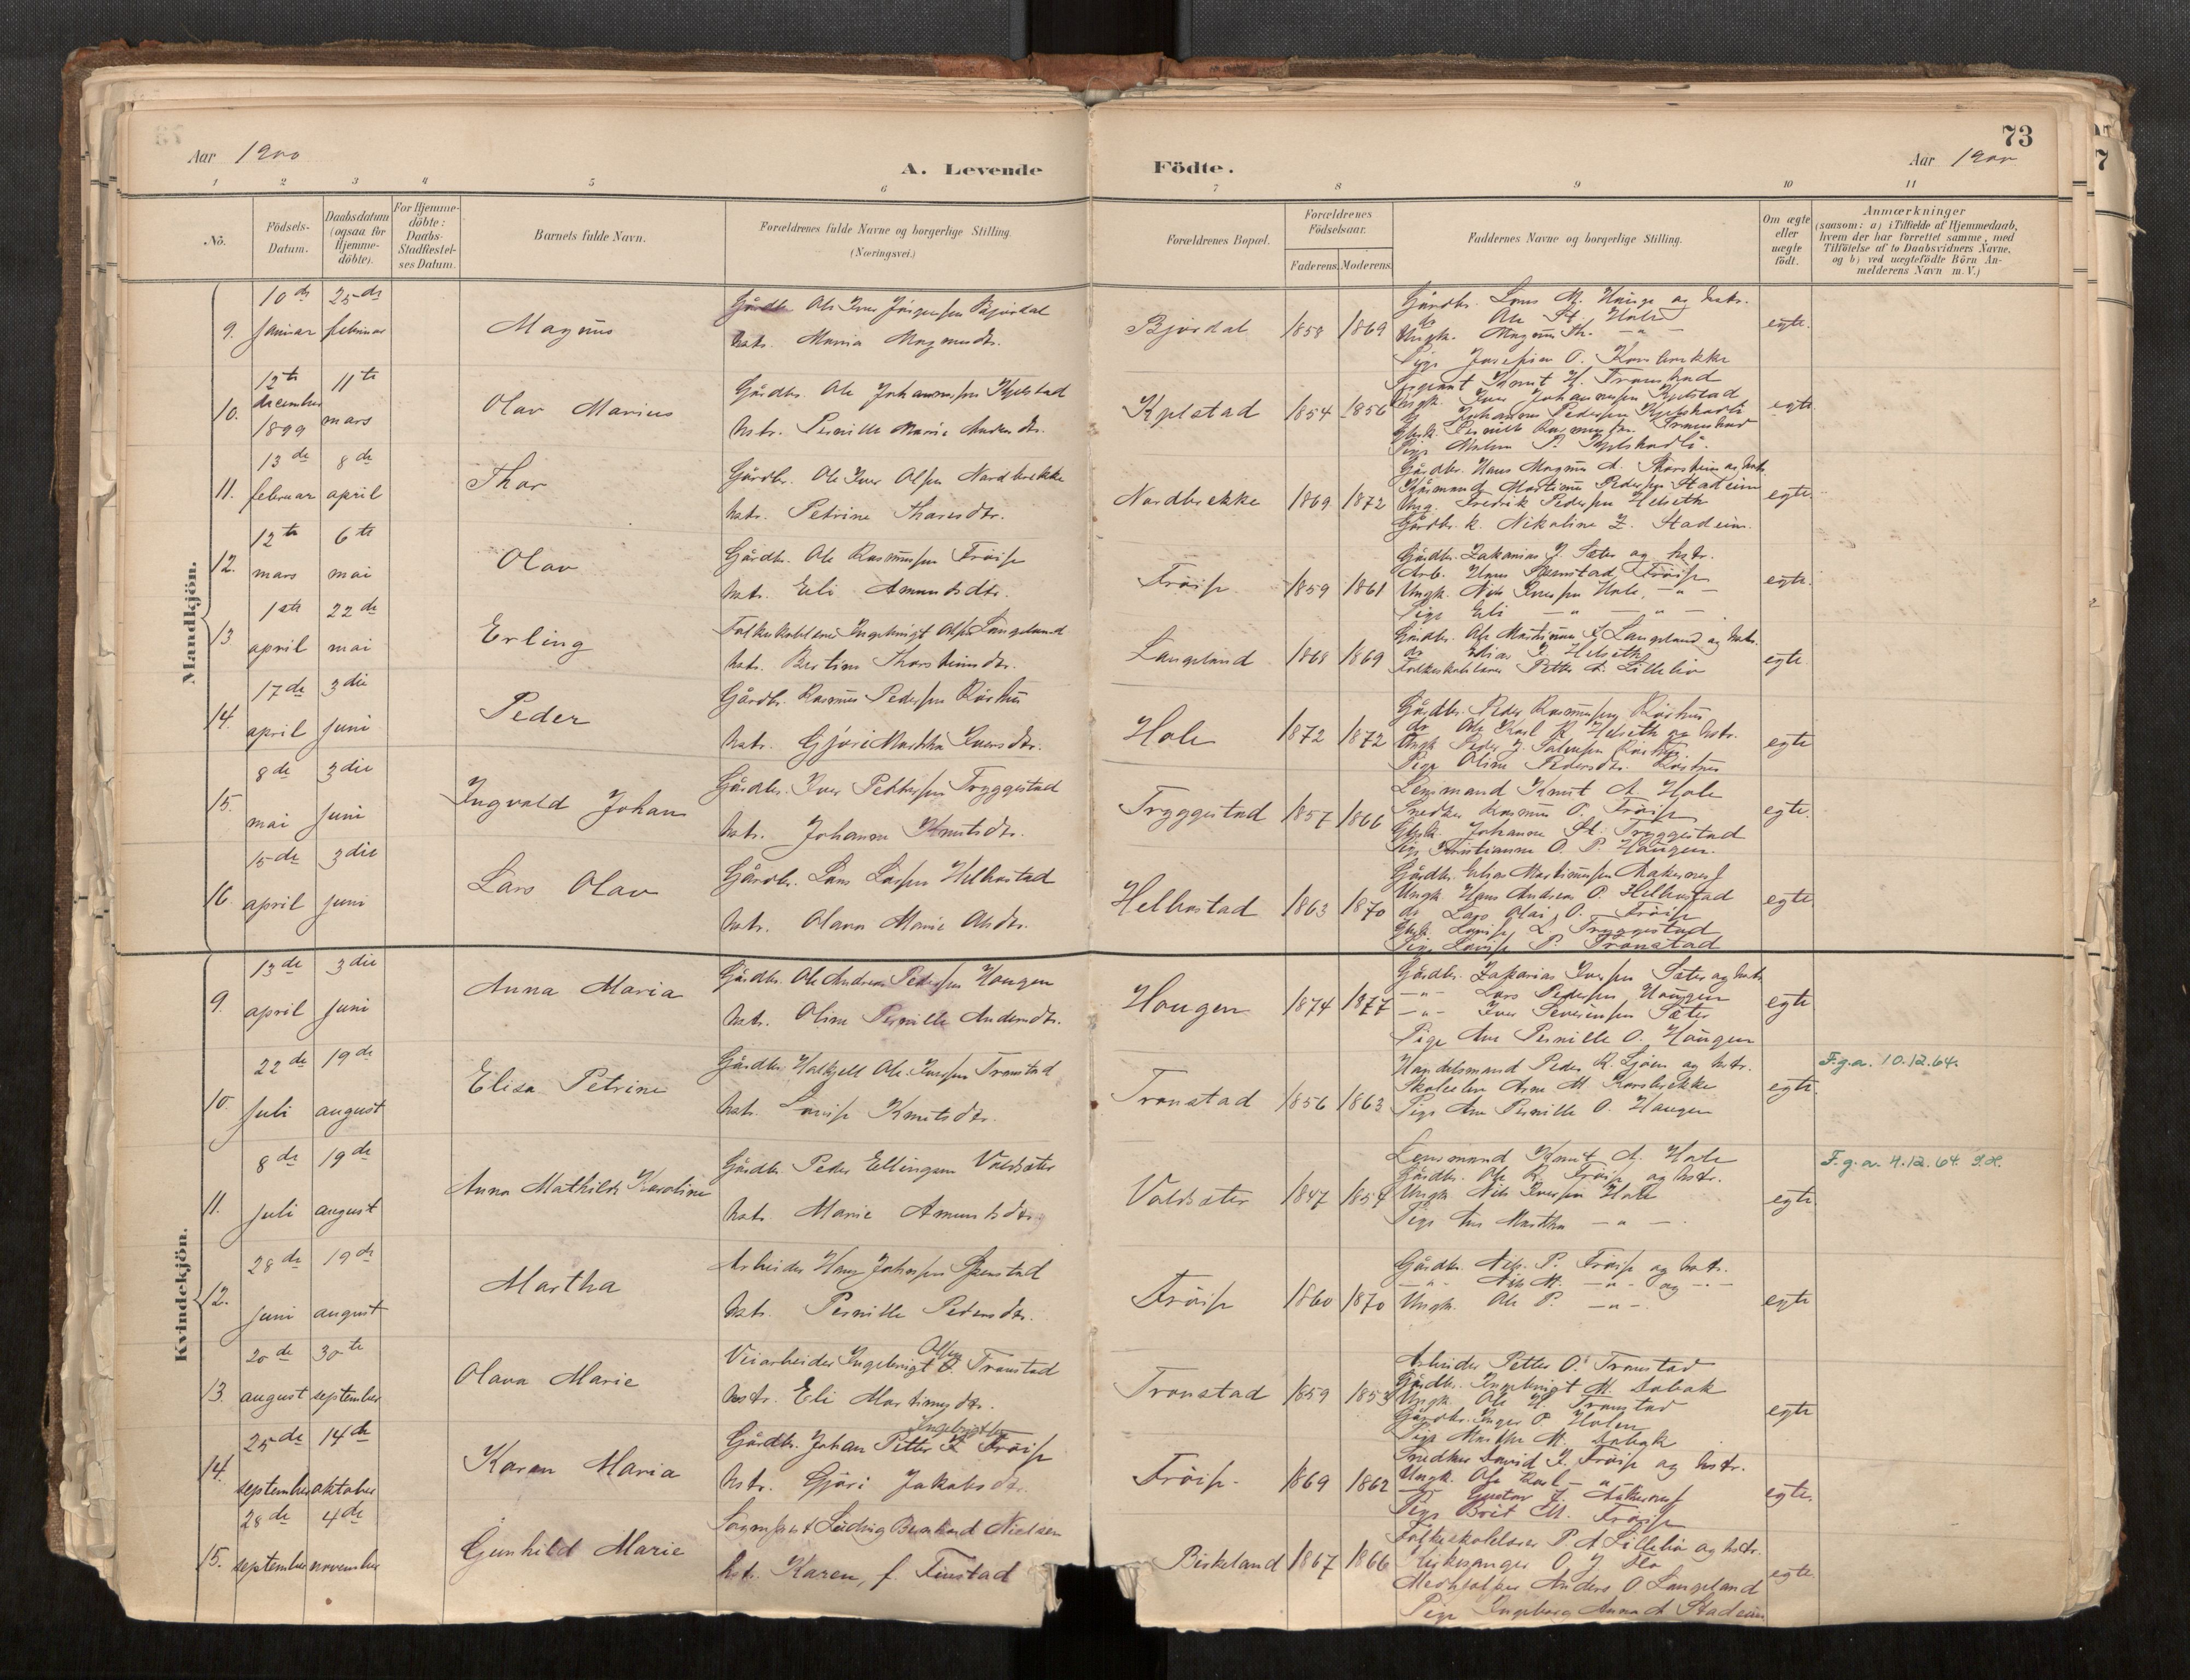 73
Aar 1900
A. Levende Födte.
Aar 1900
1 2 3 4 5 6 7 8 9 10 11
No. Födsels-Datum. Daabsdatum (ogsaa for Hjemme-döbte). For Hjemme-döbte: Daabs-Stadfæstel-ses Datum. Barnets fulde Navn. Forældrenes fulde Navne og borgerlige Stilling. (Næringsvei.) Forældrenes Bopæl. Forældrenes Födselsaar. Faderens. Moderens. Faddernes Navne og borgerlige Stilling. Om ægte eller uægte födt. Anmærkninger (saasom: a) i Tilfælde af Hjemmedaab, hvem der har forrettet samme, med Tilföielse af to Daabsvidners Navne, og b) ved uægtefödte Börn An-melderens Navn m.V.)
Mandkjön.
9. 10de januar 25de februar Magnus
Gårdbr. Ole Iver Jörgensen Björdal
hstr. Maria Magnusdtr.
Bjørdal 1858 1869
Gårdbr. Lars M. Hauge og hstr.
do Ole St. Hole
Ungk. Magnus St. — " —
Pige Josefine O. Korsbrekke
egte.
10. 12te december 1899 11te mars Olav Marius
Gårdbr. Ole Johannessen Kjelstad
hstr. Pernille Marie Andersdtr.
Kjelstad 1854 1856
Sergeant Knut H. Tronstad
Ungk. Iver Johannessen Kjelstad
egte
11. 13de februar 8de april Thor
Gårdbr. Ole Iver Olsen Nordbrekke
hstr. Petrine Thorsdtr.
Nordbrekke 1869 1872
Husmand Martinus Pedersen Stadeim
Ung. Fredrik Pedersen Helseth
Gårdbr. k. Nikoline Z. Stadeim.
egte.
12. 12te mars 6te mai Olav
Gårdbr. Ole Rasmussen Fröise
hstr. Eli Amundsdtr.
Fröise 1859 1861
Gårdbr. Zakarias J. Sæter og hstr.
Arb. Hans Spenstad, Fröise
Ungk. Nils Iversen Hole, — " —
Pige Eli — " — " —
egte.
13 1ste april 22de mai Erling
Folkeskolelærer Ingebrigt Olsen Langeland
hstr. Bertine Thorsteinsdtr.
Langeland 1868 1869
Gårdbr. Ole Martinus I. Langeland og hstr.
do Elias J. Helseth
Folkeskolelærer Petter A. Lillebø
egte
14. 17de april 3die juni Peder
Gårdbr. Rasmus Pedersen Röshus
hstr. Gjöri Martha Iversdtr.
Hole 1872 1872
Gårdbr. Peder Rasmussen Röshus
do Ole Karl R. Helseth og hstr.
Pige Oline Pedersdtr. Röshus
egte
15. 8de mai 3die juni Ingvald Johan
Gårdbr. Iver Pettersen Tryggestad
hstr. Johanne Knutsdtr.
Tryggestad 1857 1866
Lensmand Knut A. Hole
Snedker Rasmus O. Fröise
Gbrk. Johanne St. Tryggestad
Pige Kristianne O. P. Haugen.
egte.
16. 15de april 3die juni Lars Olav
Gårdbr. Lars Larsen Helhostad
hstr. Olava Marie Olsdtr.
Helhostad 1863 1870
Gårdbr. Elias Martinussen Aakernes
Ungk. Hans Andreas O. Helhostad
do Lars Olai O. Fröise
Gbrk. Lovise L. Tryggestad
Pige Lovise P. Tronstad
egte
Kvindekjön.
9. 13de april 3die juni Anna Maria
Gårdbr. Ole Andreas Pedersen Haugen
hstr. Oline Pernille Andersdtr.
Haugen 1874 1877
Gårdbr. Zakarias Iversen Sæter og hstr.
— " — Lars Pedersen Haugen
— " — Iver Severinsen Sæter
Pige Ane Pernille O. Haugen
egte
10. 22de juli 19de august Elisa Petrine
Gårdbr. Halkjell Ole Iversen Tronstad
hstr. Lovise Knutsdtr.
Tronstad 1856 1863
Handelsmand Peder R. Sjöen og hstr.
Skoleelev Arne M. Korsbrekke
Pige Ane Pernille O. Haugen
egte. F.g.a. 10.12.64.
11. 8de juli 19de august Anna Mathilde Karoline
Gårdbr. Peder Ellingsen Voldsæter
hstr. Marie Amundsdtr.
Voldsæter 1847 1854
Lensmand Knut A. Hole
Gårdbr. Ole R. Fröise og hstr.
Ungk. Nils Iversen Hole
Pige Ane Martha — " —
egte F.g.a. 4.12.64.
12. 28de juni 19de august Martha
Arbeider Hans Johnsen Spenstad
hstr. Pernille Pedersdtr.
Fröise 1860 1870
Gårdbr. Nils P. Fröise og hstr.
— " — Nils M. — " — og — " —
Ungk. Ole P. — " —
egte
13. 20de august 30te september Olava Marie
Veiarbeider Ingebrigt Olsen Tronstad
hstr. Eli Martinusdtr.
Tronstad 1859 1853
Arbeider Petter O. Tronstad
Gårdbr. Ingebrigt M. Aabak
Ungk. Ole H. Tronstad
Gårdbr. Inger O. Holen
egte
14. 25de september 14de oktober Karen Maria
Gårdbr. Johan Petter Ingebrigtsen Fröise
hstr. Gjöri Jakobsdtr.
Fröise. 1869 1862
Snedker David I. Fröise og hstr.
Ungk. Ole Karl — " —
Gustav J. Aakernes
Pige Brit El. Fröise
egte.
15. 28de september 4de november Gunhild Marie
Sogneprest Ludvig Bernhard Nielsen
hstr. Karen, f. Finstad
Birkeland 1867 1866
Folkeskolelærer P. A. Lillebø og hstr.
Kirkesanger O. J. Flo
Medhjælper Anders O Langeland
Pige Ingeborg Anna A Stadeim
egte.